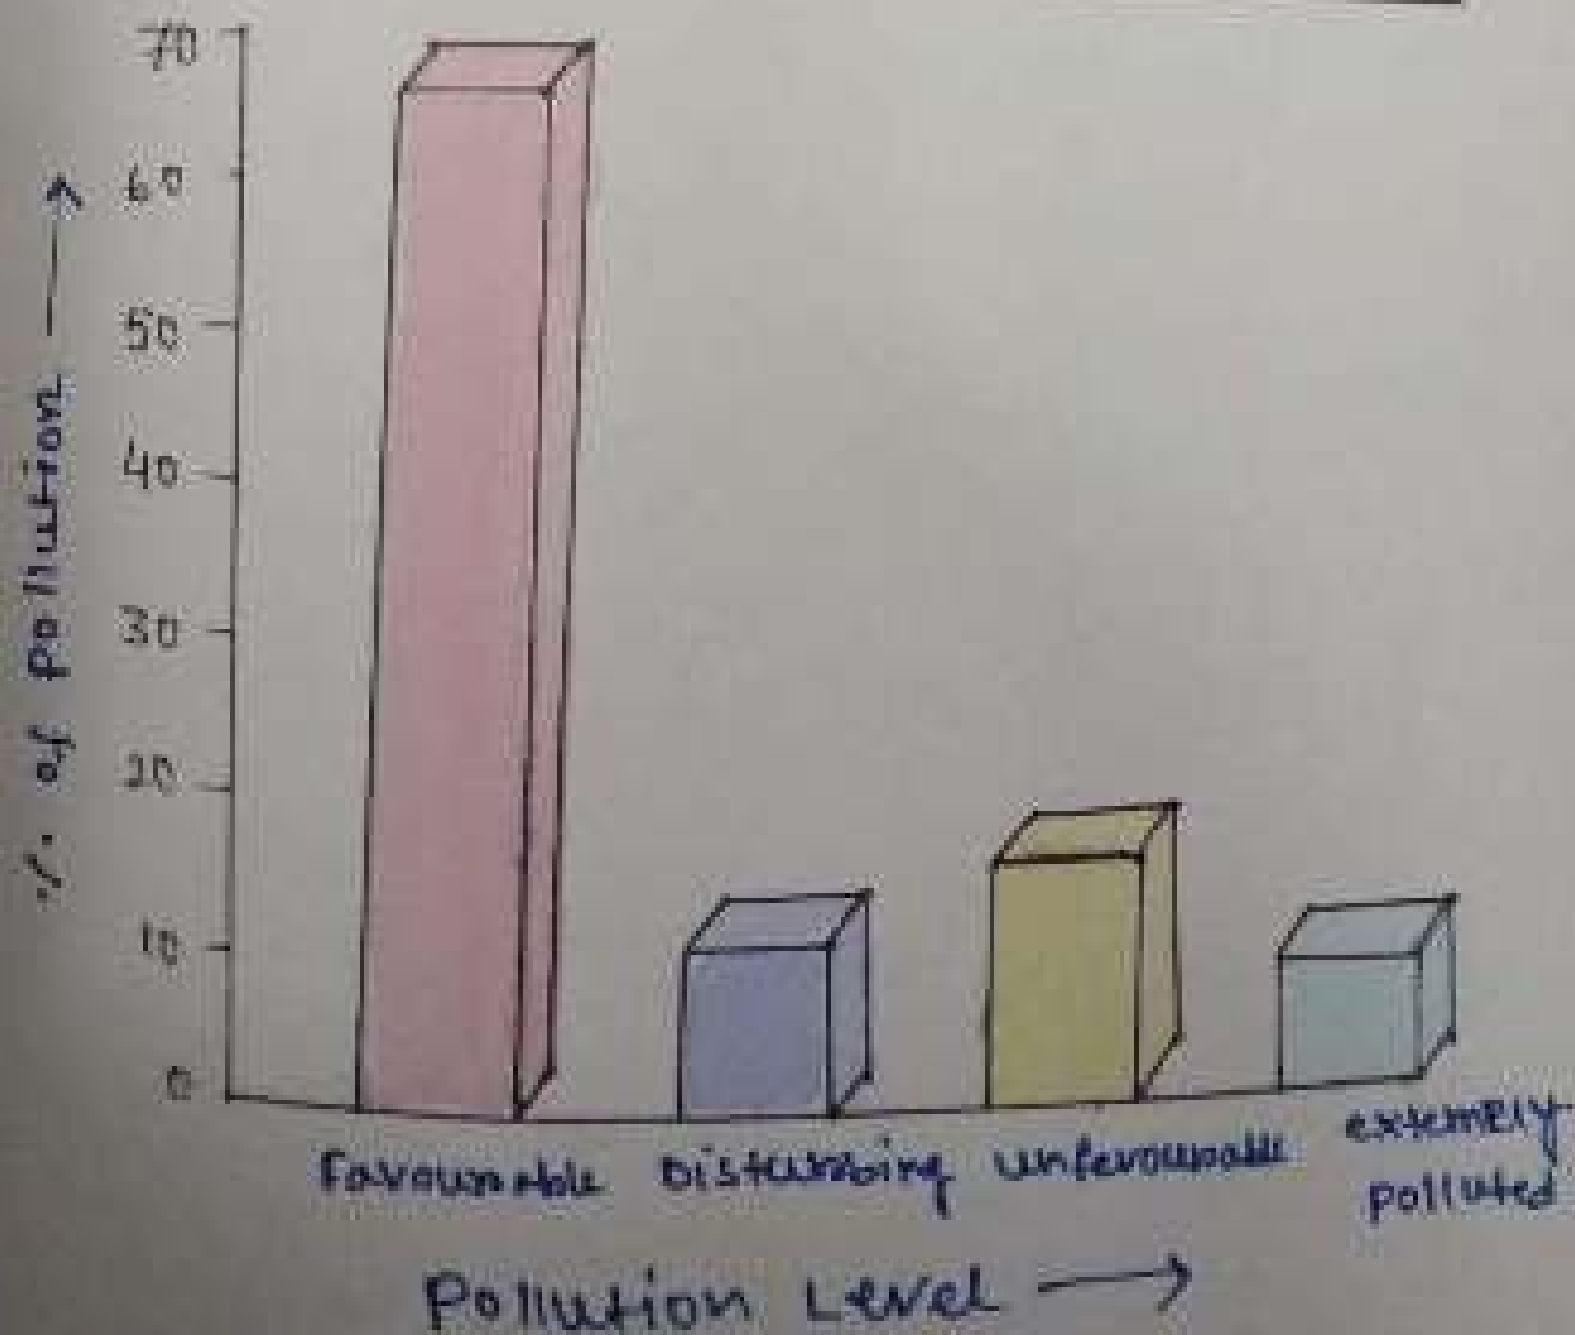 70
60
50
40
30
20
10
0
% of pollution
Favourable
Disturbing
unfavourable
extemely
polluted
Pollution Level